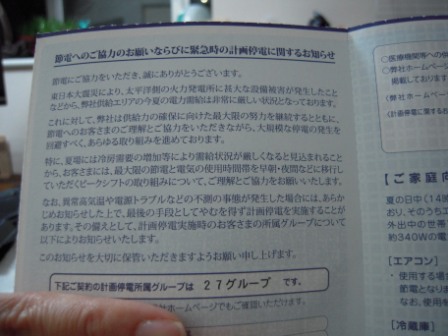 節電へのご協力のお願いならびに緊急時の計画停電に関するお知らせ
節電にご協力をいただき、誠にありがとうございます。
東日本大震災により、太平洋側の火力発電所に甚大な設備被害が発生したこと
などから、弊社供給エリアの今夏の電力需給は非常に厳しい状況となっております。
これに対して、弊社は供給力の確保に向けた最大限の努力を継続するとともに、
節電へのお客さまのご理解とご協力をいただきながら、大規模な停電の発生を
回避すべく、あらゆる取組みを進めております。
特に、夏場には冷房需要の増加等により需給状況が厳しくなると見込まれること
から、お客さまには、最大限の節電と電気の使用時間帯を早朝・夜間などに移行し
ていただくピークシフトの取組みについて、ご理解とご協力をお願いいたします。
なお、異常高気温や電源トラブルなどの不測の事態が発生した場合には、あらか
じめお知らせした上で、最後の手段としてやむを得ず計画停電を実施することが
あります。その備えとして、計画停電実施時のお客さまの所属グループについて
以下によりお知らせいたします。
このお知らせを大切に保管いただきますようお願い申し上げます。
下記ご契約の計画停電所属グループは 27グループ です。
社ホームページでもご確認いただけます。
○医療機関等への供
○弊社ホームページ
掲載しており
(弊社ホームペー
(計画停電に関する
【ご家庭向
夏の日中(14時
おり、そのうちエ
外出中の世帯
約340Wの電
[エアコン]
・使用する場
節電となりま
なお、使用
[冷蔵庫]